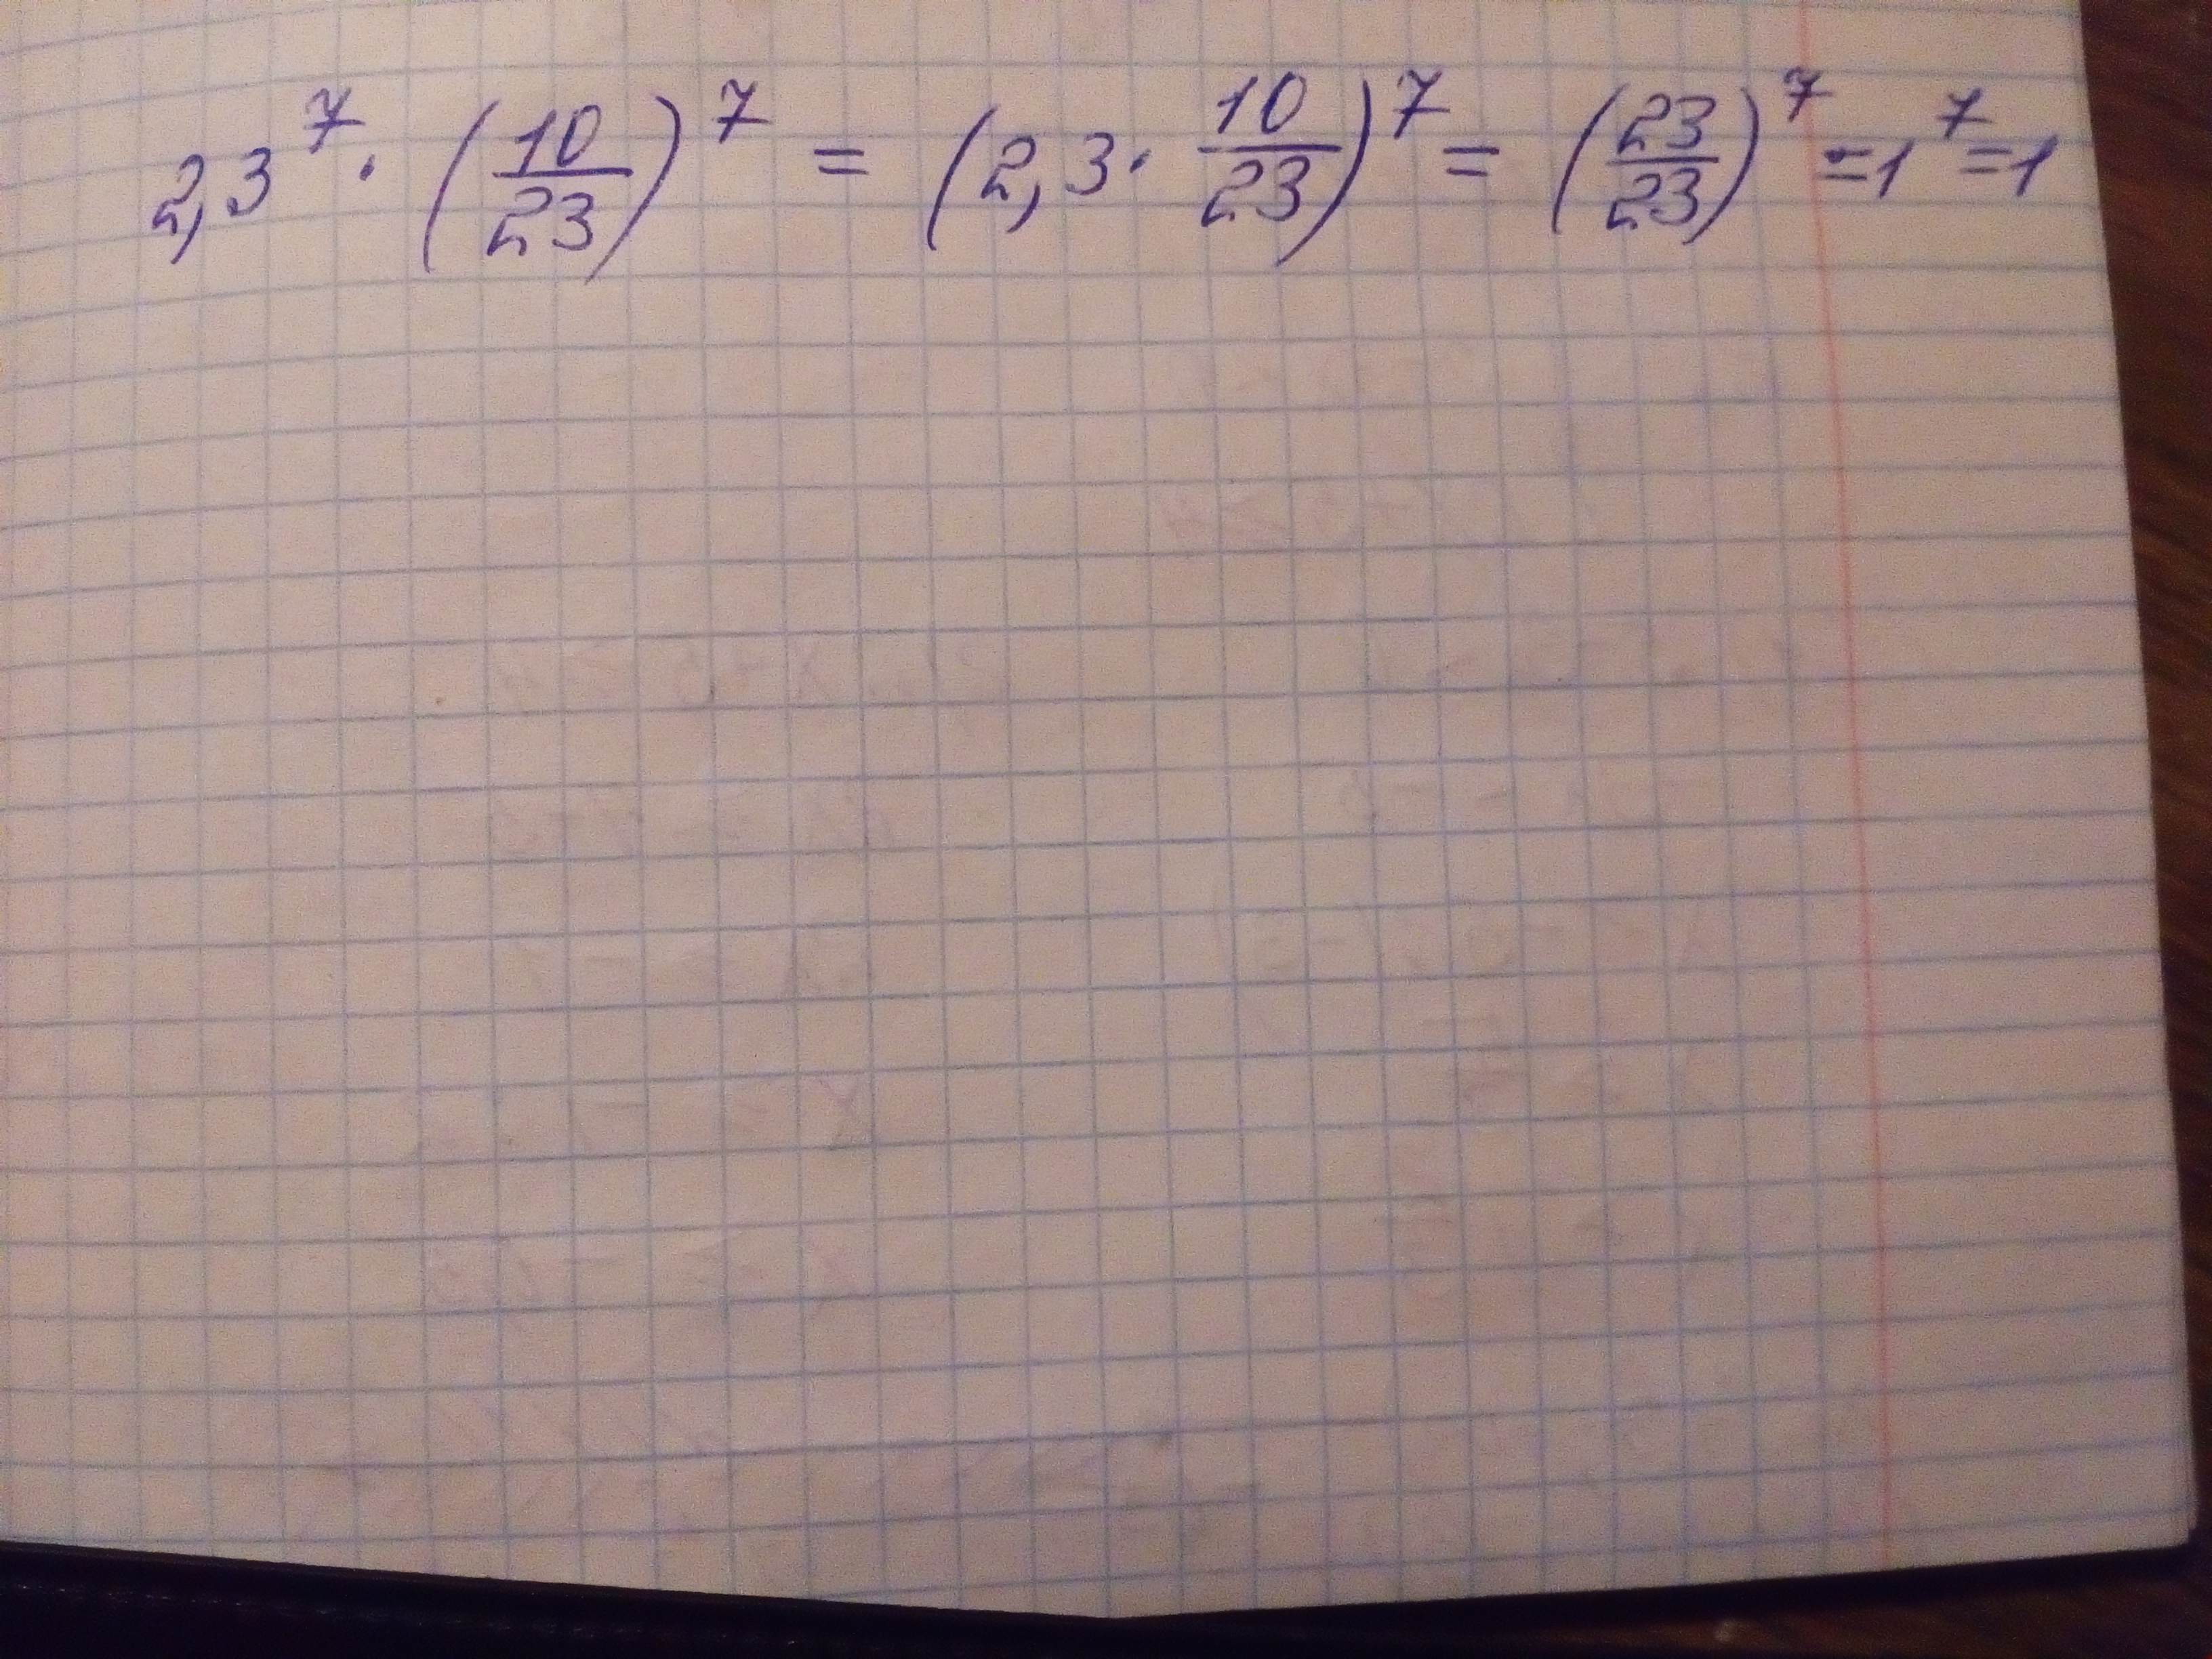 2,3⁷ · (10/23)⁷ = (2,3 · 10/23)⁷ = (23/23)⁷ = 1⁷ = 1